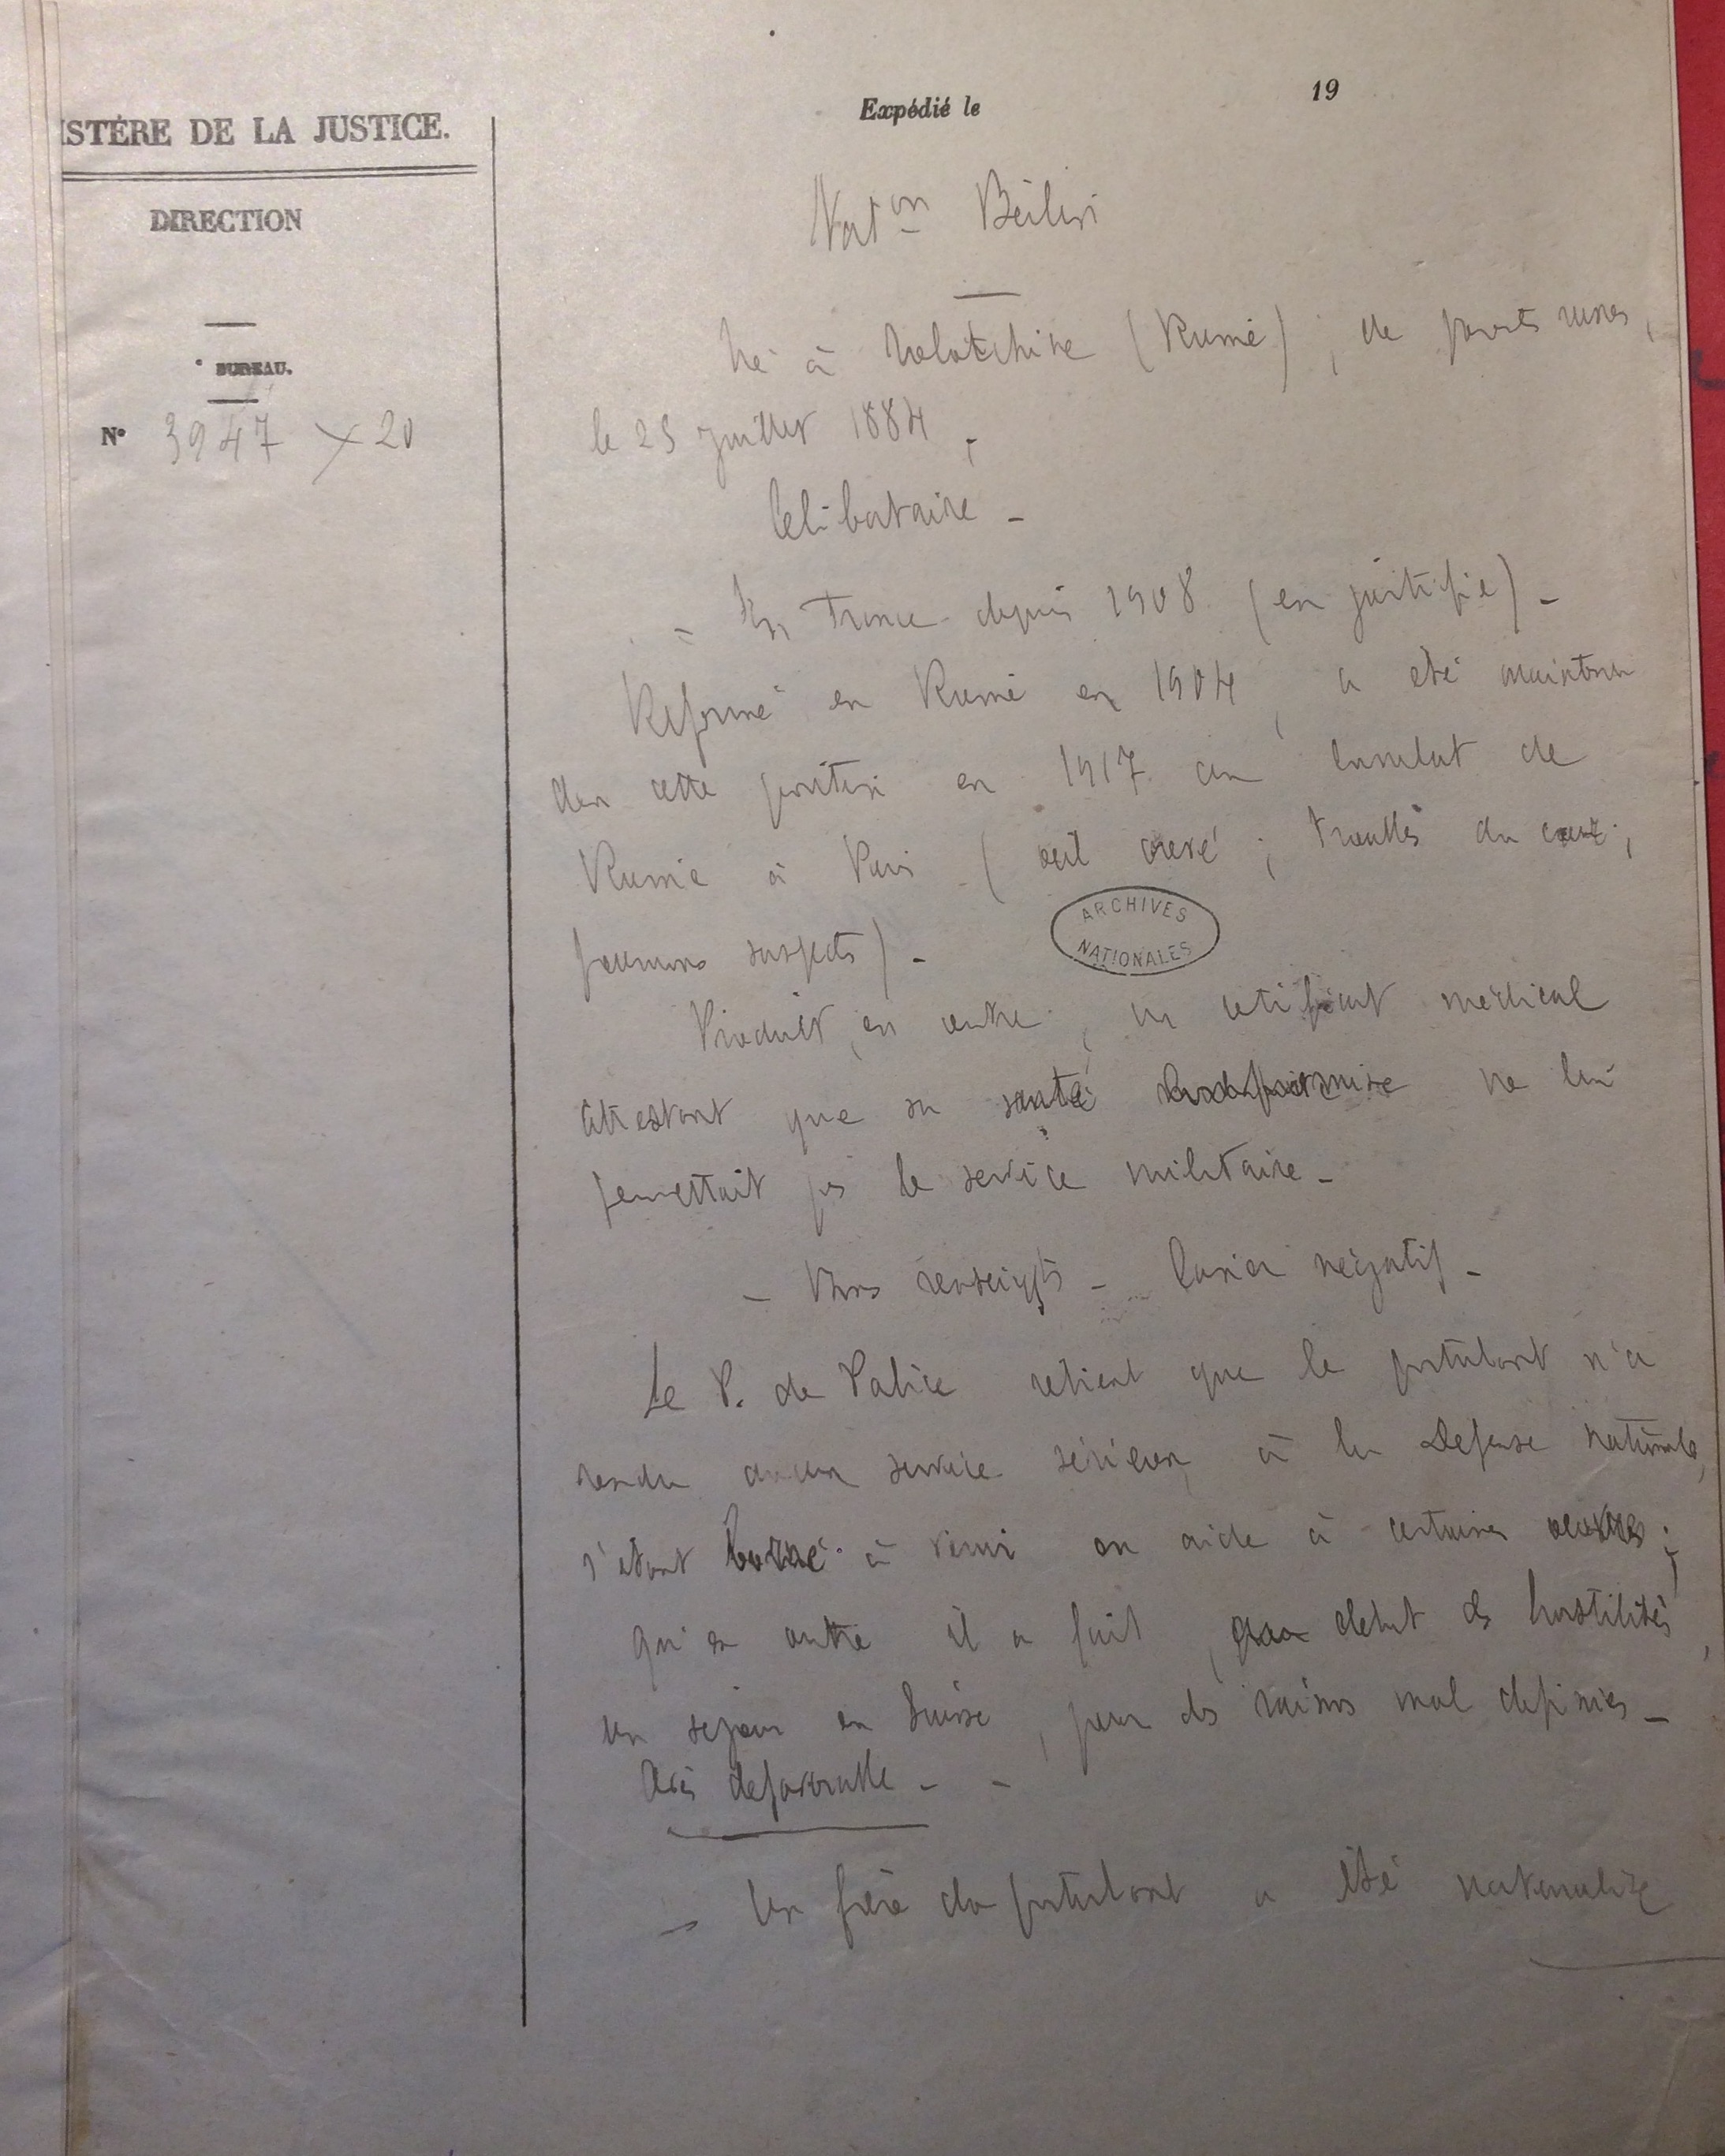 ISTÈRE DE LA JUSTICE.
DIRECTION
BUREAU.
N° 3947 X 20
Expédié le 19
Nat on Beilin
Né à (Russie), de parents russes,
le 25 juillet 1884.
Célibataire -
- En France depuis 1908 (en justifie) -
Réformé en Russie en 1904, a été maintenu
dans cette position en 1917 au Consulat de
Russie à Paris (œil crevé ; troubles du cœur ;
poumons suspects) -
ARCHIVES
NATIONALES
Produit, en outre, un certificat médical
attestant que sa santé ne lui
permettait pas le service militaire -
- Bons renseigts - Casier négatif -
Le P. de Police retient que le postulant n'a
rendu aucun service sérieux à la Défense nationale,
s'étant borné à venir en aide à certaines œuvres ;
qu'en outre il a fait, au début des hostilités,
un séjour en Suisse, pour des raisons mal définies -
Avis défavorable - -
- Un frère du postulant a été naturalisé